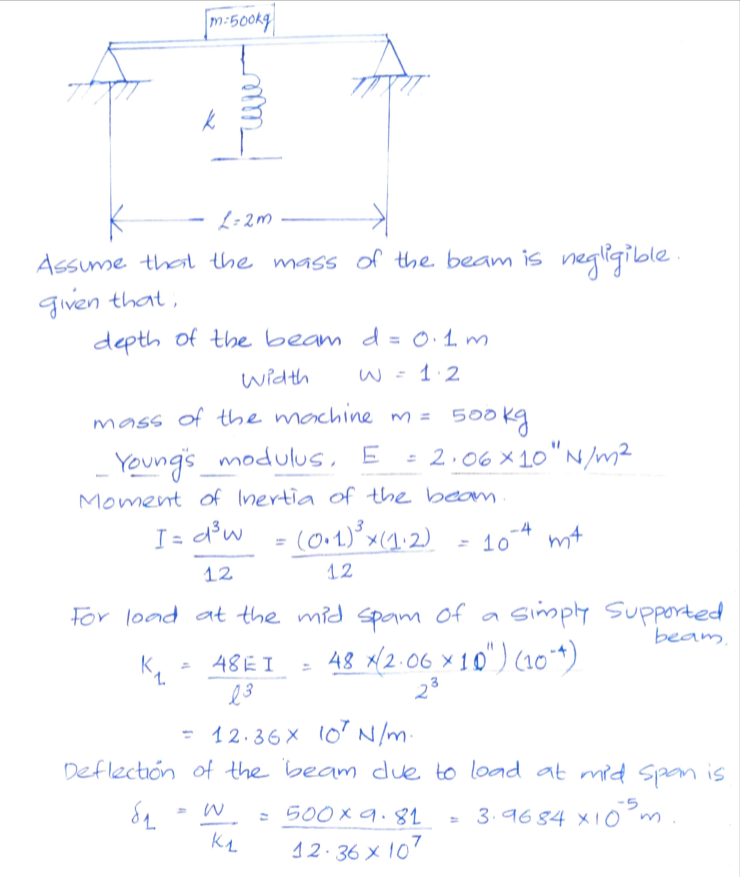 m=500kg
k
L=2m
Assume that the mass of the beam is negligible.
given that,
depth of the beam d = 0.1 m
Width W = 1.2
mass of the machine m = 500 kg
Young's modulus, E = 2.06 × 10¹¹ N/m²
Moment of Inertia of the beam.
I = d³w / 12 = (0.1)³ × (1.2) / 12 = 10⁻⁴ m⁴
For load at the mid spam of a simply supported
beam.
K₁ = 48EI / l³ = 48 × (2.06 × 10¹¹) (10⁻⁴) / 2³
= 12.36 × 10⁷ N/m.
Deflection of the beam due to load at mid span is
δ₁ = W / K₁ = 500 × 9.81 / 12.36 × 10⁷ = 3.9684 × 10⁻⁵ m.